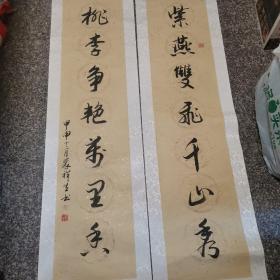 紫燕雙飛千山秀
桃李争艳萬里春
甲申十二月